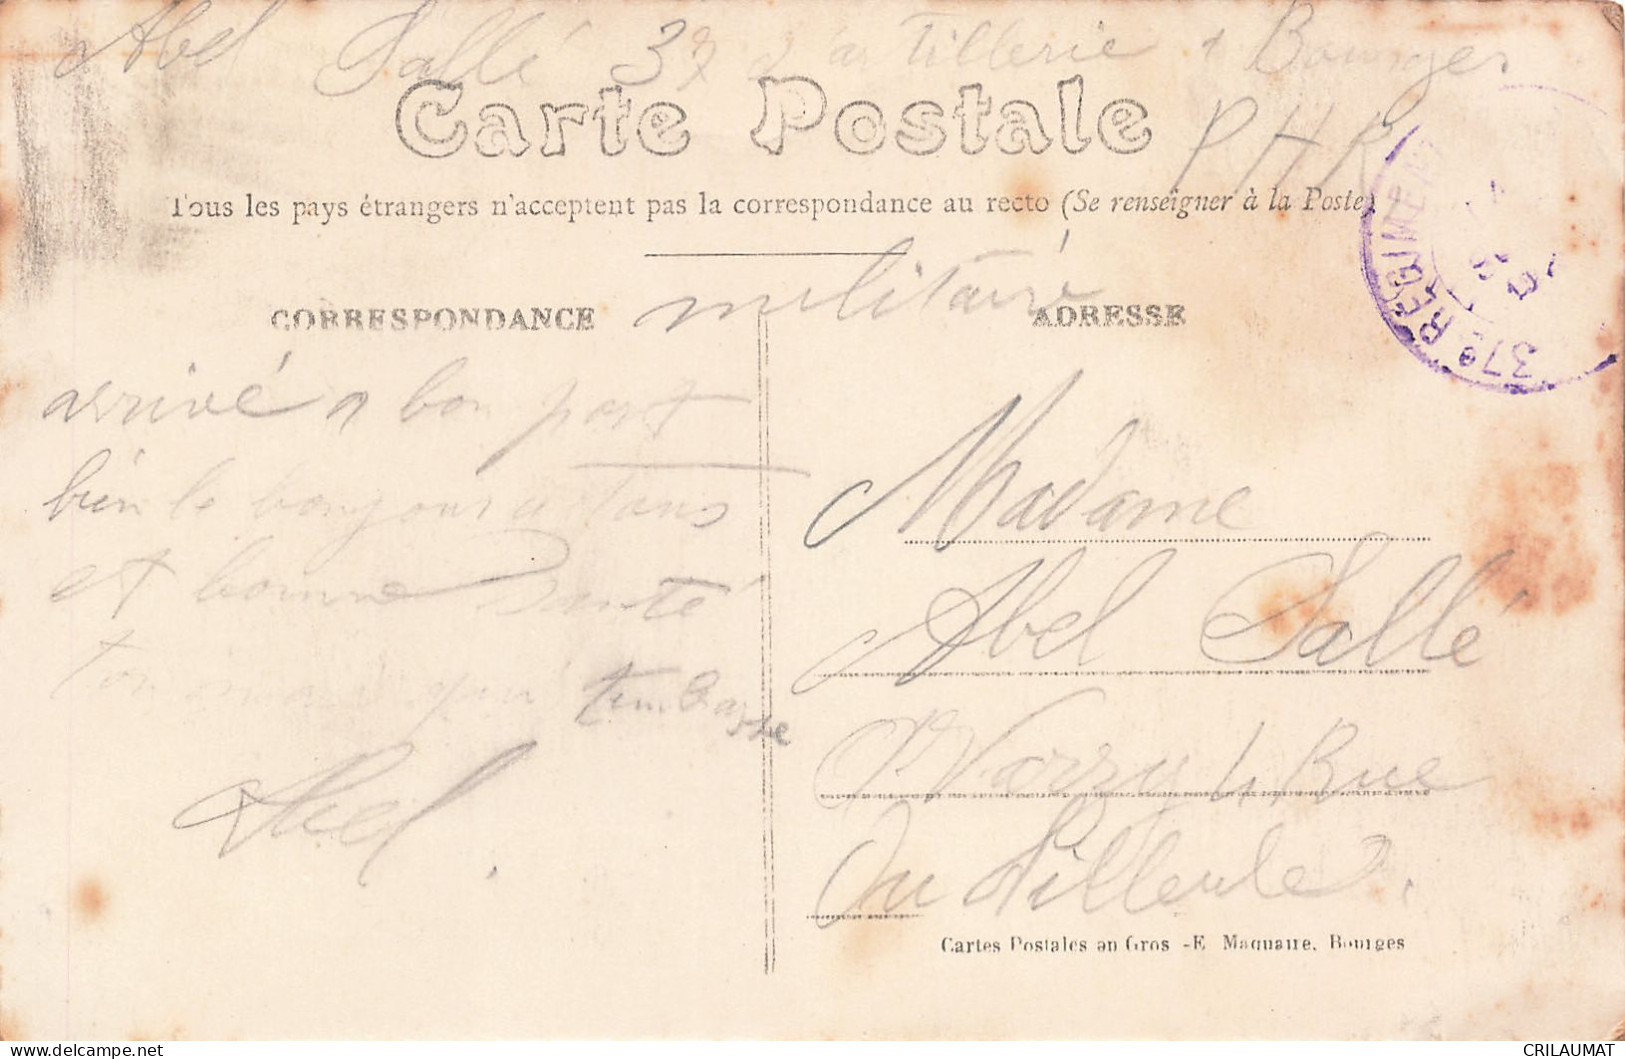 Abel Sallé 37 d'artillerie à Bourges
Carte Postale
PHR
Tous les pays étrangers n'acceptent pas la correspondance au recto (Se renseigner à la Poste)
37e RÉGIMENT
militairé
CORRESPONDANCE
ADRESSE
arrivé a bon port
bien le bonjour a tous
et bonne santé
ton mari qui t'embrasse
Abel.
Madame
Abel Sallé
Varzy Rue
Du
Cartes Postales en Gros - E. Maquaire, Bourges
delcampe.net
CRILAUMAT